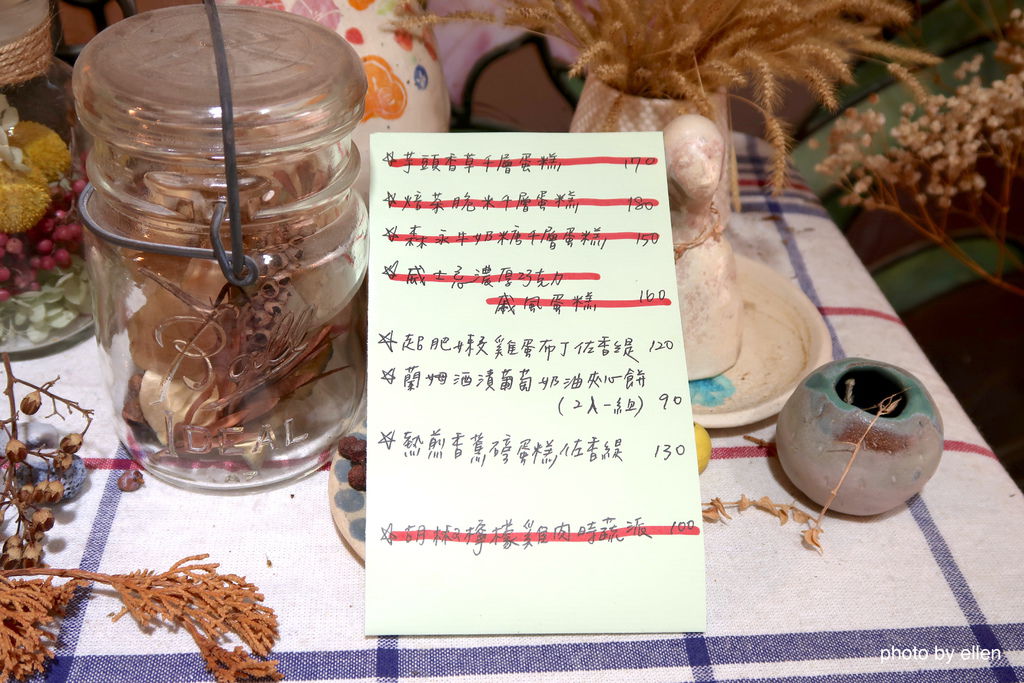 ☆芋頭香草千層蛋糕 170
☆焙茶脆米千層蛋糕 180
☆森永牛奶糖千層蛋糕 150
☆威士忌濃厚巧克力
戚風蛋糕 160
☆超肥嫩雞蛋布丁佐香緹 120
☆蘭姆酒漬葡萄奶油夾心餅
(2入一組) 90
☆熱煎香蕉磅蛋糕佐香緹 130
☆胡椒檸檬雞肉時蔬派 100
Ball
IDEAL
photo by ellen